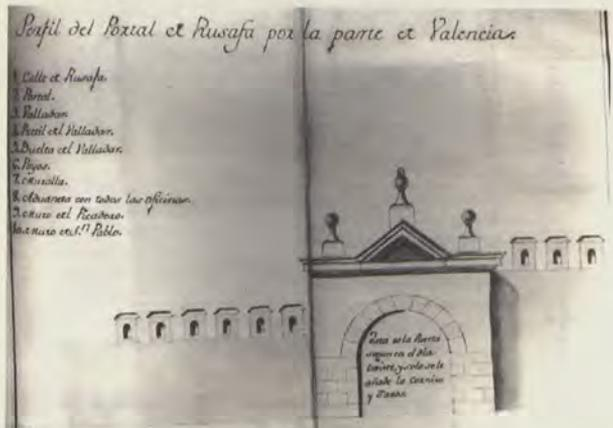 Perfil del Portal de Rusafa por la parte de Valencia.
1. Calle de Rusafa.
2. Portal.
3. Valladar.
4. Pretil del Valladar.
5. Buelta del Valladar.
6. Poyos.
7. Muralla.
8. Aduaneta con todas las oficinas.
9. Muro del Picadero.
10. Muro de S.n Pablo.
Esta es la Puerta
segun en el dia
y solo se le
añade la Cornisa
y